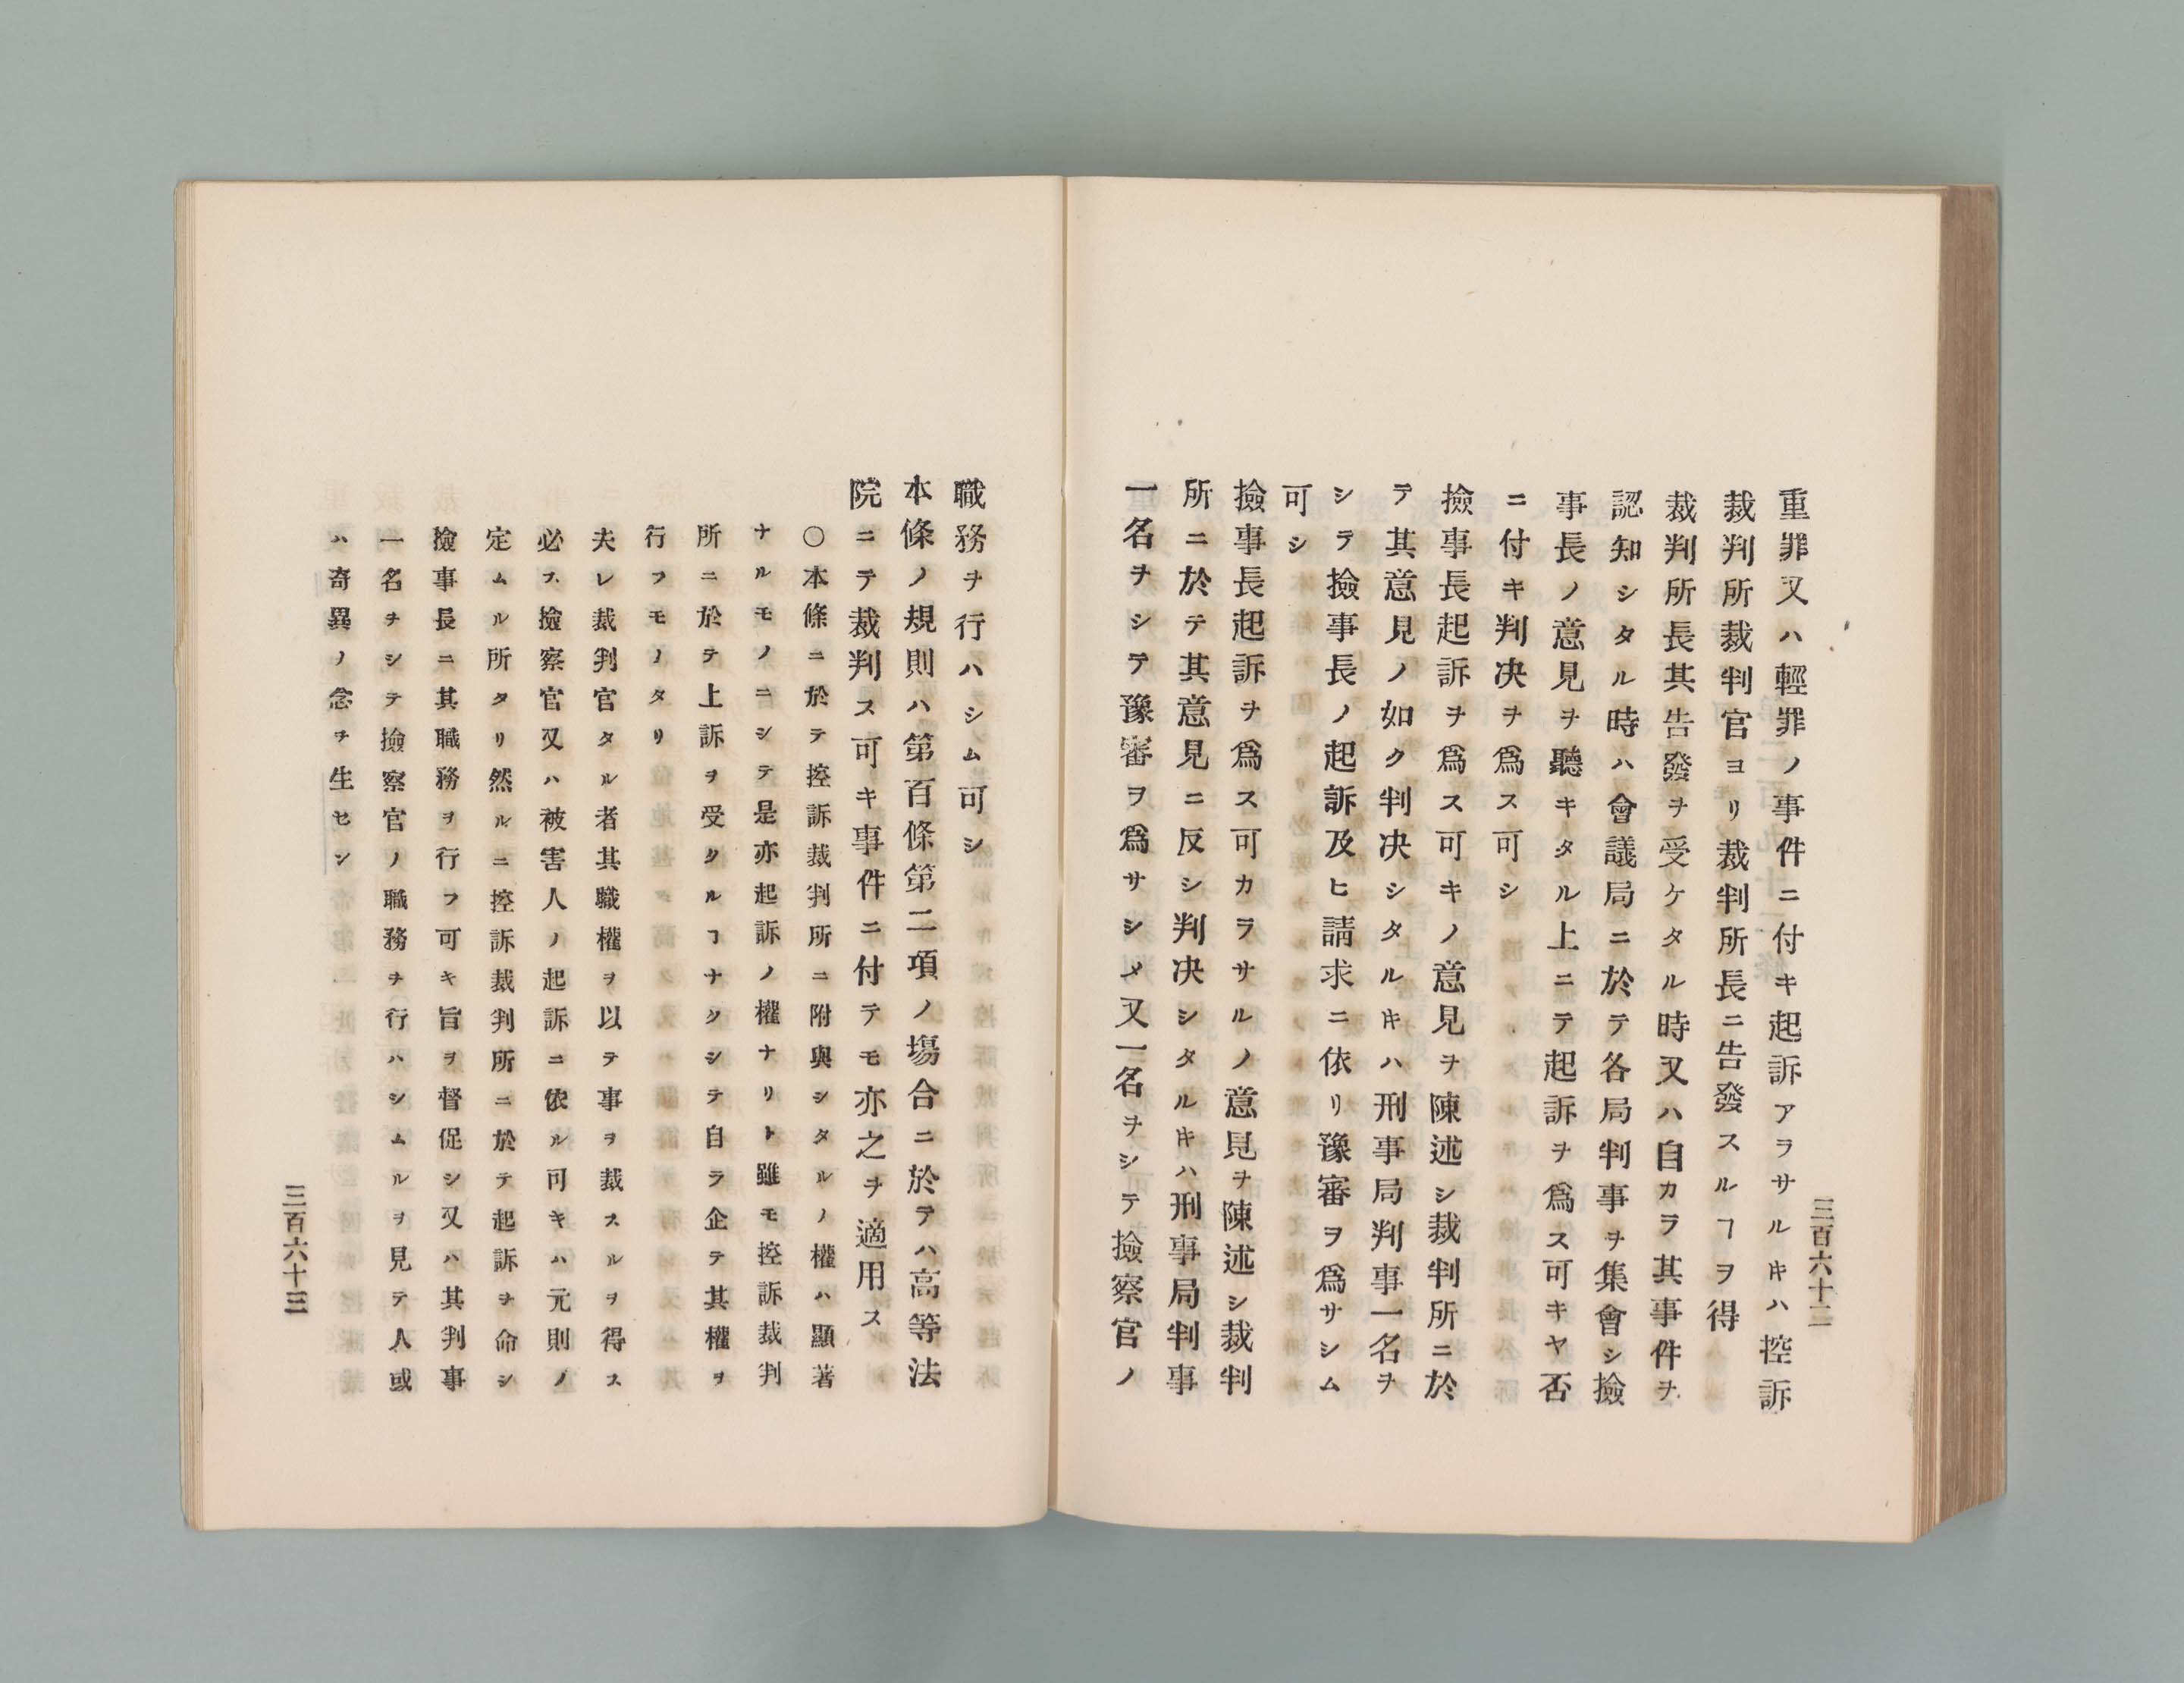 三百六十二
重罪又ハ輕罪ノ事件ニ付キ起訴アラサルキハ控訴
裁判所裁判官ヨリ裁判所長ニ告發スルヿヲ得
裁判所長其告發ヲ受ケタル時又ハ自カラ其事件ヲ
認知シタル時ハ會議局ニ於テ各局判事ヲ集會シ撿
事長ノ意見ヲ聽キタル上ニテ起訴ヲ爲ス可キヤ否
ニ付キ判决ヲ爲ス可シ
撿事長起訴ヲ爲ス可キノ意見ヲ陳述シ裁判所ニ於
テ其意見ノ如ク判决シタルキハ刑事局判事一名ヲ
シテ撿事長ノ起訴及ヒ請求ニ依リ豫審ヲ爲サシム
可シ
撿事長起訴ヲ爲ス可カラサルノ意見ヲ陳述シ裁判
所ニ於テ其意見ニ反シ判决シタルキハ刑事局判事
一名ヲシテ豫審ヲ爲サシメ又一名ヲシテ撿察官ノ
職務ヲ行ハシム可シ
本條ノ規則ハ第百條第二項ノ塲合ニ於テハ高等法
院ニテ裁判ス可キ事件ニ付テモ亦之ヲ適用ス
〇本條ニ於テ控訴裁判所ニ附與シタルノ權ハ顯著
ナルモノニシテ是亦起訴ノ權ナリト雖モ控訴裁判
所ニ於テ上訴ヲ受クルヿナクシテ自ラ企テ其權ヲ
行フモノタリ
夫レ裁判官タル者其職權ヲ以テ事ヲ裁スルヲ得ス
必ス撿察官又ハ被害人ノ起訴ニ依ル可キハ元則ノ
定ムル所タリ然ルニ控訴裁判所ニ於テ起訴ヲ命シ
撿事長ニ其職務ヲ行フ可キ旨ヲ督促シ又ハ其判事
一名ヲシテ撿察官ノ職務ヲ行ハシムルヲ見テ人或
ハ奇異ノ念ヲ生セン
三百六十三